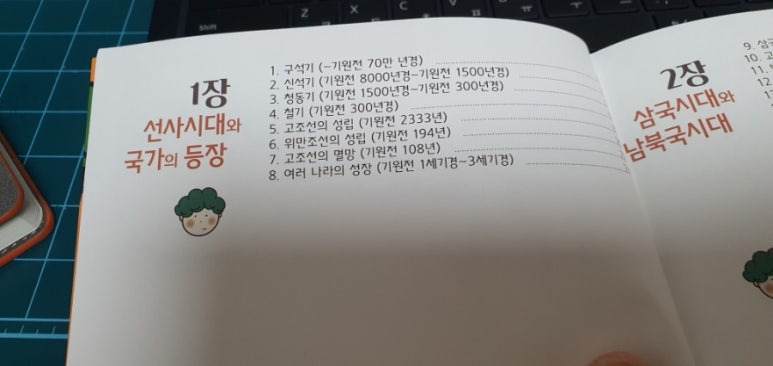 1장
선사시대와
국가의 등장
1. 구석기 (~기원전 70만 년경)
2. 신석기 (기원전 8000년경~기원전 1500년경)
3. 청동기 (기원전 1500년경~기원전 300년경)
4. 철기 (기원전 300년경)
5. 고조선의 성립 (기원전 2333년)
6. 위만조선의 성립 (기원전 194년)
7. 고조선의 멸망 (기원전 108년)
8. 여러 나라의 성장 (기원전 1세기경~3세기경)
2장
삼국시대와
남북국시대
9. 삼국
10. 고
11.
12.